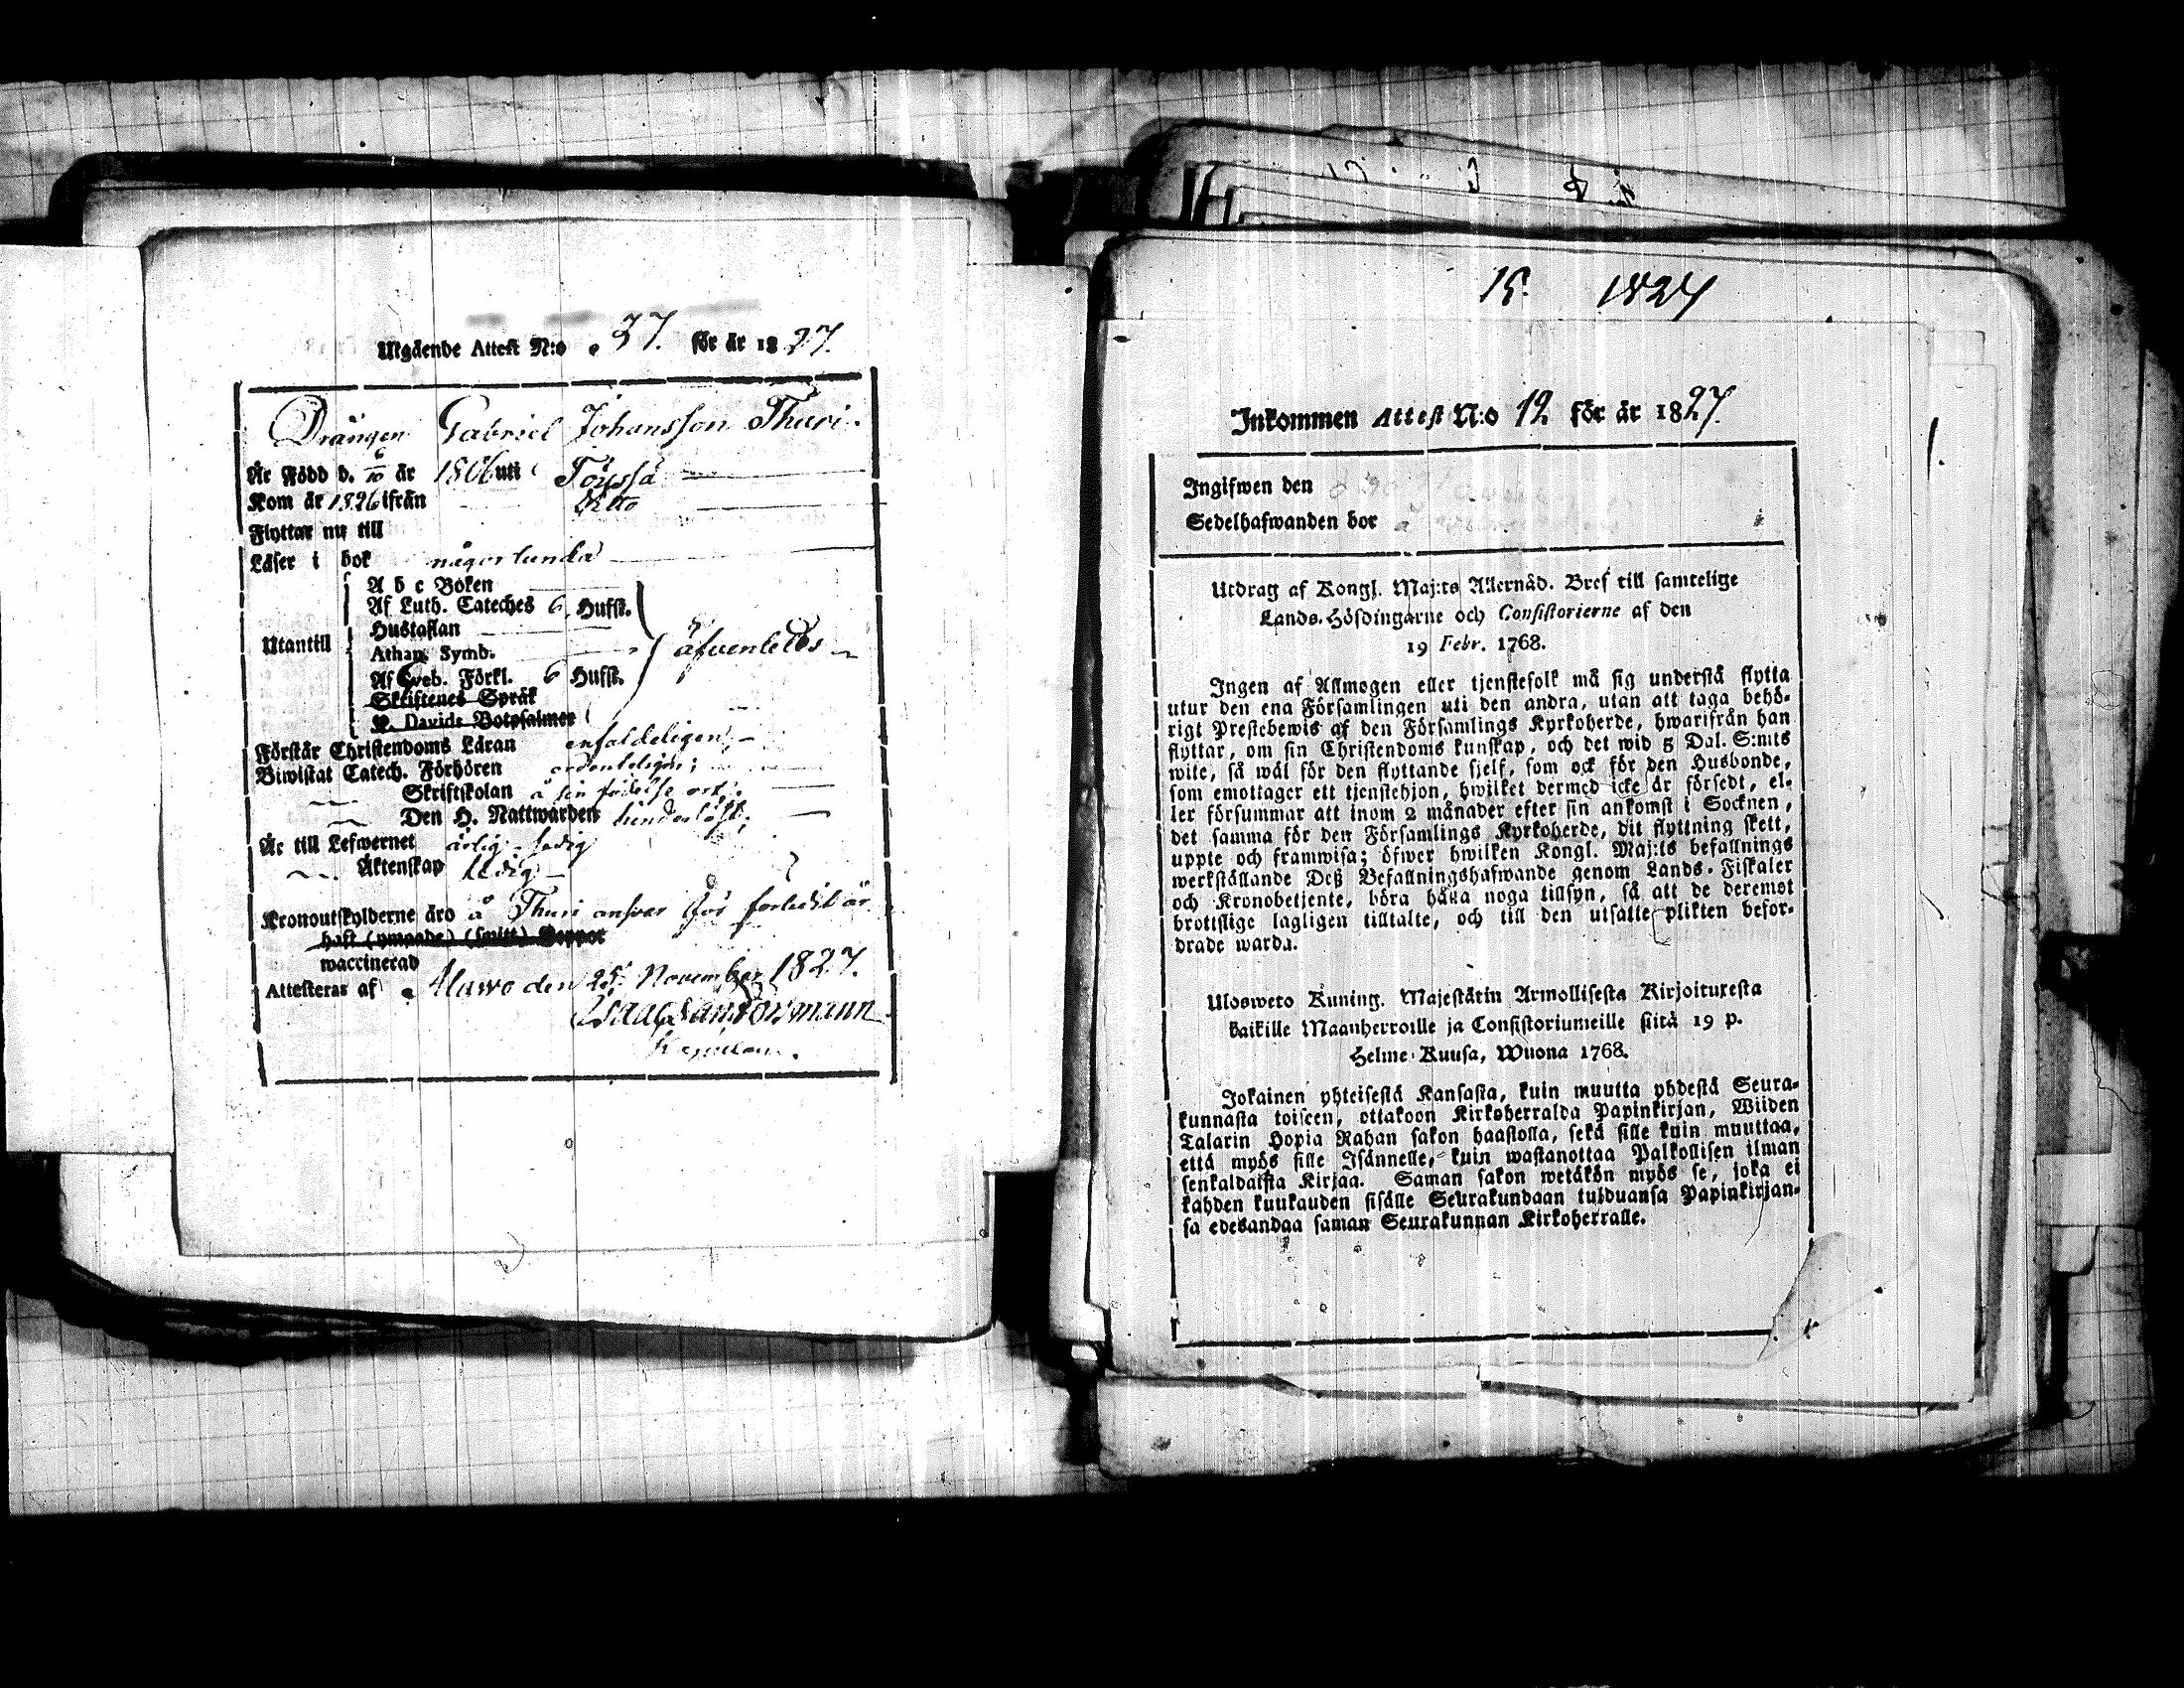 Utgående Attest N:o 37. för år 1827.
Drängen Gabriel Johansson Thuri.
Är Född d. 6/10 år 1806 uti Töyssä
Kom år 1826 ifrån Ditto
Flyttar nu till
Läser i bok någorlunda
A b c Boken
Af Luth. Cateches 6 Hufst.
Hustaflan
Utantill
Athan. Symb.
äfvenledes
Af Sveb. Förkl. 6 Hufst.
Skriftenes Språk
K. Davids Botpsalmer
Förstår Christendoms Läran enfaldeligen;
Biwistat Catech. Förhören ordenteligen;
Skriftskolan å sin födelse ort;
Den H. Nattwarden
Är till Lefwernet ärlig
Äktenskap ledig
Kronoutskylderne äro å Thuri ansvar för
haft (ympade) (smitt) Koppor
waccinerad
Attesteras af Alawo den 25 November 1827.
Isaac
Kapellan.
15. 1827
Inkommen Attest N:o 12 för år 1827.
1.
Ingifwen den
Sedelhafwanden bor
Utdrag af Kongl. Maj:ts Allernåd. Bref till samtelige
Lands-Höfdingarne och Consistorierne af den
19 Febr. 1768.
Ingen af Allmogen eller tjenstefolk må sig understå flytta
utur den ena Församlingen uti den andra, utan att taga behö-
rigt Prestebewis af den Församlings Kyrkoherde, hwarifrån han
flyttar, om sin Christendoms kunskap, och det wid 5 Dal. S:mts
wite, så wäl för den flyttande sjelf, som ock för den Husbonde,
som emottager ett tjenstehjon, hwilket dermed icke är försedt, el-
ler försummar att inom 2 månader efter sin ankomst i Socknen,
det samma för den Församlings Kyrkoherde, dit flyttning skett,
uppte och framwisa; öfwer hwilken Kongl. Maj:ts befallnings
werkställande Deß Befallningshafwande genom Lands-Fiskaler
och Kronobetjente, böra hålla noga tillsyn, så att de deremot
brottslige lagligen tilltalte, och till den utsatte plikten befor-
drade warda.
Ulosweto Kuning. Majestätin Armollisesta Kirjoituxesta
kaikille Maanherroille ja Consistoriumeille siitä 19 p.
Helme-Kuusa, Wuona 1768.
Jokainen yhteisestä Kansasta, kuin muutta yhdestä Seura-
kunnasta toiseen, ottakoon Kirkoherralda Papinkirjan, Wiiden
Talarin Hopia Rahan sakon haastolla, sekä sille kuin muuttaa,
että myös sille Isännelle, kuin wastanottaa Palkollisen ilman
senkaldaista Kirjaa. Saman sakon wetäkön myös se, joka ei
kahden kuukauden sisälle Seurakundaan tulduansa Papinkirjan-
sa edesandaa saman Seurakunnan Kirkoherralle.